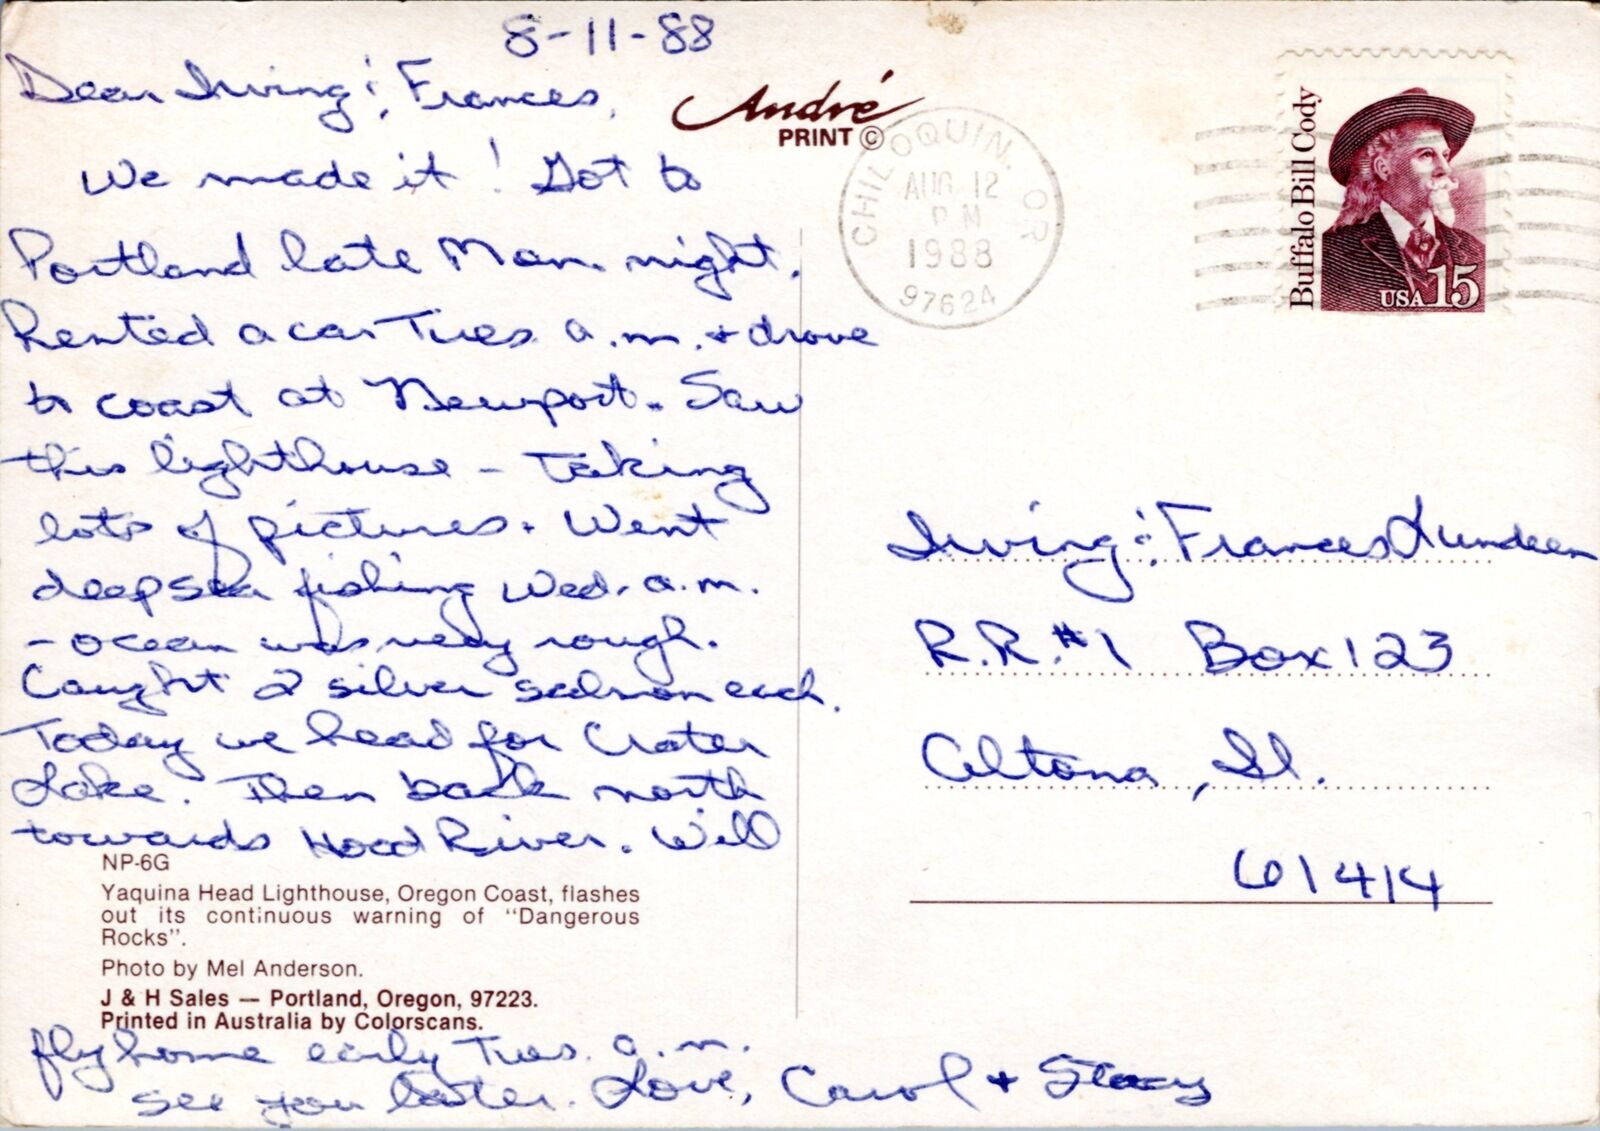 8-11-88
Dear Irving & Frances,
We made it! Got to
Portland late Mon. night.
Rented a car Tues. a.m. + drove
to coast at Newport. Saw
this lighthouse - taking
lots of pictures. Went
deep sea fishing Wed. a.m.
- ocean was very rough.
Caught 2 silver salmon each.
Today we head for Crater
Lake. Then back north
towards Hood River. Will
NP-6G
Yaquina Head Lighthouse, Oregon Coast, flashes
out its continuous warning of "Dangerous
Rocks".
Photo by Mel Anderson.
J & H Sales — Portland, Oregon, 97223.
Printed in Australia by Colorscans.
fly home early Tues. a.m.
See you later. Love, Carol + Stacy
André
PRINT ©
CHILOQUIN, OR
AUG 12
PM
1988
97624
Buffalo Bill Cody
USA 15
Irving & Frances Lundeen
R.R. #1 Box 123
Altona, Il.
61414